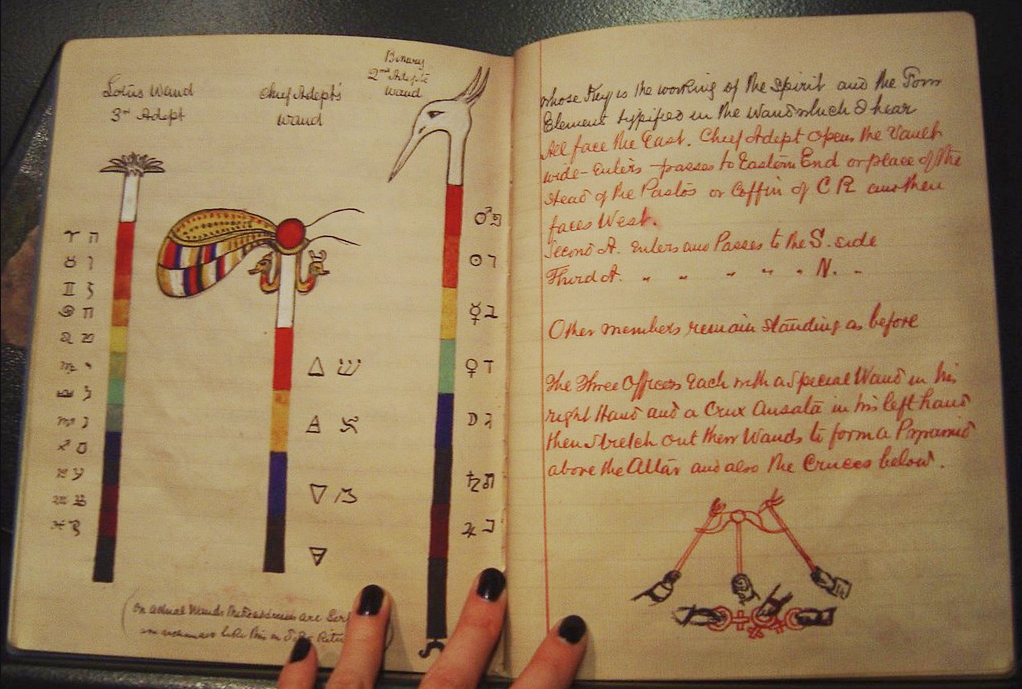 Lotus Wand
3rd Adept
Chief Adept's
Wand
Binary
2nd Adepts
Wand
♈ ה
♉ ו
♊ ז
♋ ח
♌ ט
♍ י
♎ ל
♏ נ
♐ ס
♑ ע
♒ צ
♓ ק
🜂 ש
🜁 א
🜄 מ
🜃
♂ פ
☉ ר
☿ ב
♀ ד
☽ ג
♄ ת
♃ כ
on actual Wands the
whose Key is the working of the Spirit and the Form
Element typified in the Wand which I bear
All face the East. Chief Adept opens the Vault
wide - Enters - passes to Eastern End or place of the
Head of the Pastos or Coffin of C.R. and then
faces West.
Second A. Enters and Passes to the S. side
Third A. " " " " " N. "
Other members remain standing as before
The Three Officers Each with a Special Wand in his
right Hand and a Crux Ansata in his left hand
then stretch out their Wands to form a Pyramid
above the Altar and also the Cruces below.